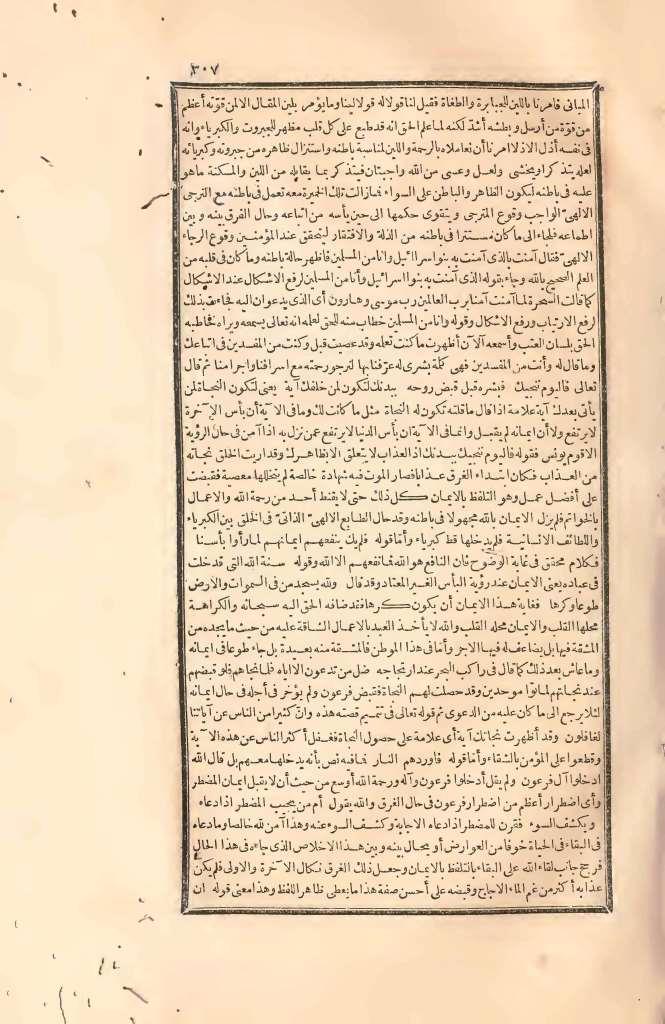 ٣٠٧
المباني فامرنا باللين للجبابرة والطغاة فقيل لنا قولا له قولا لينا وما يؤمر بلين المقال الا من قوته أعظم
من قوة من أرسل وبطشه أشد لكنه لما علم الحق انه قد طبع على كل قلب مظهر للجبروت والكبرياء وانه
فى نفسه أذل الاذلاء امر نا أن نعاملاه بالرحمة واللين لمناسبة باطنه واستنزال ظاهره من جبروته وكبريائه
لعله يتذكر او يخشى ولعل وعسى من الله واجبتان فيتذكر بما يقابله من اللين والمسكنة ما هو
عليه فى باطنه ليكون الظاهر والباطن على السواء فما زالت تلك الخميرة معه تعمل فى باطنه مع الترجى
الالهىّ الواجب وقوع المترجى ويتقوى حكمها الى حين يأسه من اتباعه وحال الغرق بينه وبين
اطماعه فلجاء الى ما كان مستترا فى باطنه من الذلة والافتقار ليتحقق عند المؤمنين وقوع الرجاء
الالهىّ فقال آمنت بالذى آمنت به بنو اسرائيل وانا من المسلمين فاظهر حالة باطنه وما كان فى قلبه من
العلم الصحيح بالله وجاء بقوله الذى آمنت به بنو اسرائيل وأنا من المسلمين لرفع الاشكال عند الاشكال
كما قالت السحرة لما آمنت آمنا برب العالمين رب موسى وهارون أى الذى يدعوان اليه فجاءت بذلك
لرفع الارتياب ورفع الاشكال وقوله وانا من المسلمين خطاب منه للحق لعلمه انه تعالى يسمعه ويراه فخاطبه
الحق بلسان العتب وأسمعه آلآن أظهرت ما كنت تعلمه وقد عصيت قبل وكنت من المفسدين فى اتباعك
وما قال له وأنت من المفسدين فهى كلمة بشرى له عرّفنا بها لنرجو رحمته مع اسرافنا واجرامنا ثم قال
تعالى فاليوم ننجيك فبشره قبل قبض روحه ببدنك لتكون لمن خلفك آية يعنى لتكون النجاة لمن
يأتى بعدك آية علامة اذا قال ما قلته تكون له النجاة مثل ما كانت لك وما فى الآية أن بأس الآخرة
لا يرتفع ولا أن ايمانه لم يقبل وانما فى الآية ان بأس الدنيا لا يرتفع عمن نزل به اذا آمن فى حال الرؤية
الا قوم يونس فقوله فاليوم ننجيك ببدنك اذ العذاب لا يتعلق الا بظاهرك وقد أريت الخلق نجاته
من العذاب فكان ابتداء الغرق عذابا فصار الموت فيه شهادة خالصة لم يتخللها معصية فقبضت
على أفضل عمل وهو التلفظ بالايمان كل ذلك حتى لا يقنط أحد من رحمة الله والاعمال
بالخواتم فلم يزل الايمان بالله مجهولا فى باطنه وقد حال الطابع الالهىّ الذاتىّ فى الخلق بين الكبرياء
واللطائف الانسانية فلم يدخلها قط كبرياء وأما قوله فلم يك ينفعهم ايمانهم لما رأوا بأسنا
فكلام محقق فى غاية الوضوح فان النافع هو الله فما نفعهم الا الله وقوله سنة الله التى قد خلت
فى عباده يعنى الايمان عند رؤية البأس الغير المعتاد وقد قال ولله يسجد من فى السموات والارض
طوعا وكرها فغاية هذا الايمان أن يكون كرها فقد اضافه الحق اليه سبحانه والكراهة
محلها القلب والايمان محله القلب والله لا يأخذ العبد بالاعمال الشاقة عليه من حيث ما يجده من
المشقة فيها بل يضاعف له فيها الاجر وأما فى هذا الموطن فالمشقة منه بعيدة بل جاء طوعا فى ايمانه
وما عاش بعد ذلك كما قال فى راكب البحر عند ارتجاجه ضل من تدعون الا اياه فلما نجاهم فلو قبضهم
عند نجاتهم لماتوا موحدين وقد حصلت لهم النجاة فقبض فرعون ولم يؤخر فى أجله فى حال ايمانه
لئلا يرجع الى ما كان عليه من الدعوى ثم قوله تعالى فى تتميم قصته هذه وانّ كثيرا من الناس عن آياتنا
لغافلون وقد أظهرت نجاتك آية أى علامة على حصول النجاة فغفل أكثر الناس عن هذه الآية
وقطعوا على المؤمن بالشقاء وأما قوله فاوردهم النار فما فيه نص بأنه يدخلها معهم بل قال الله
ادخلوا آل فرعون ولم يقل أدخلوا فرعون وآله ورحمة الله أوسع من حيث أن لا يقبل ايمان المضطر
وأى اضطرار أعظم من اضطرار فرعون فى حال الغرق والله يقول أم من يجيب المضطر اذا دعاه
ويكشف السوء فقرن للمضطر اذا دعاه الاجابة وكشف السوء عنه وهذا آمن لله خالصا وما دعاه
فى البقاء فى الحياة خوفا من العوارض أو يحال بينه وبين هذا الاخلاص الذى جاءه فى هذا الحال
فرجح جانب لقاء الله على البقاء بالتلفظ بالايمان وجعل ذلك الغرق نكال الآخرة والاولى فلم يكن
عذابه أكثر من غم الماء الاجاج وقبضه على أحسن صفة هذا ما يعطى ظاهر اللفظ وهذا معنى قوله ان